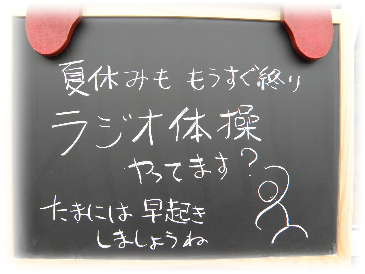 夏休みも もうすぐ終り
ラジオ体操
やってます?
たまには 早起き
しましょうね